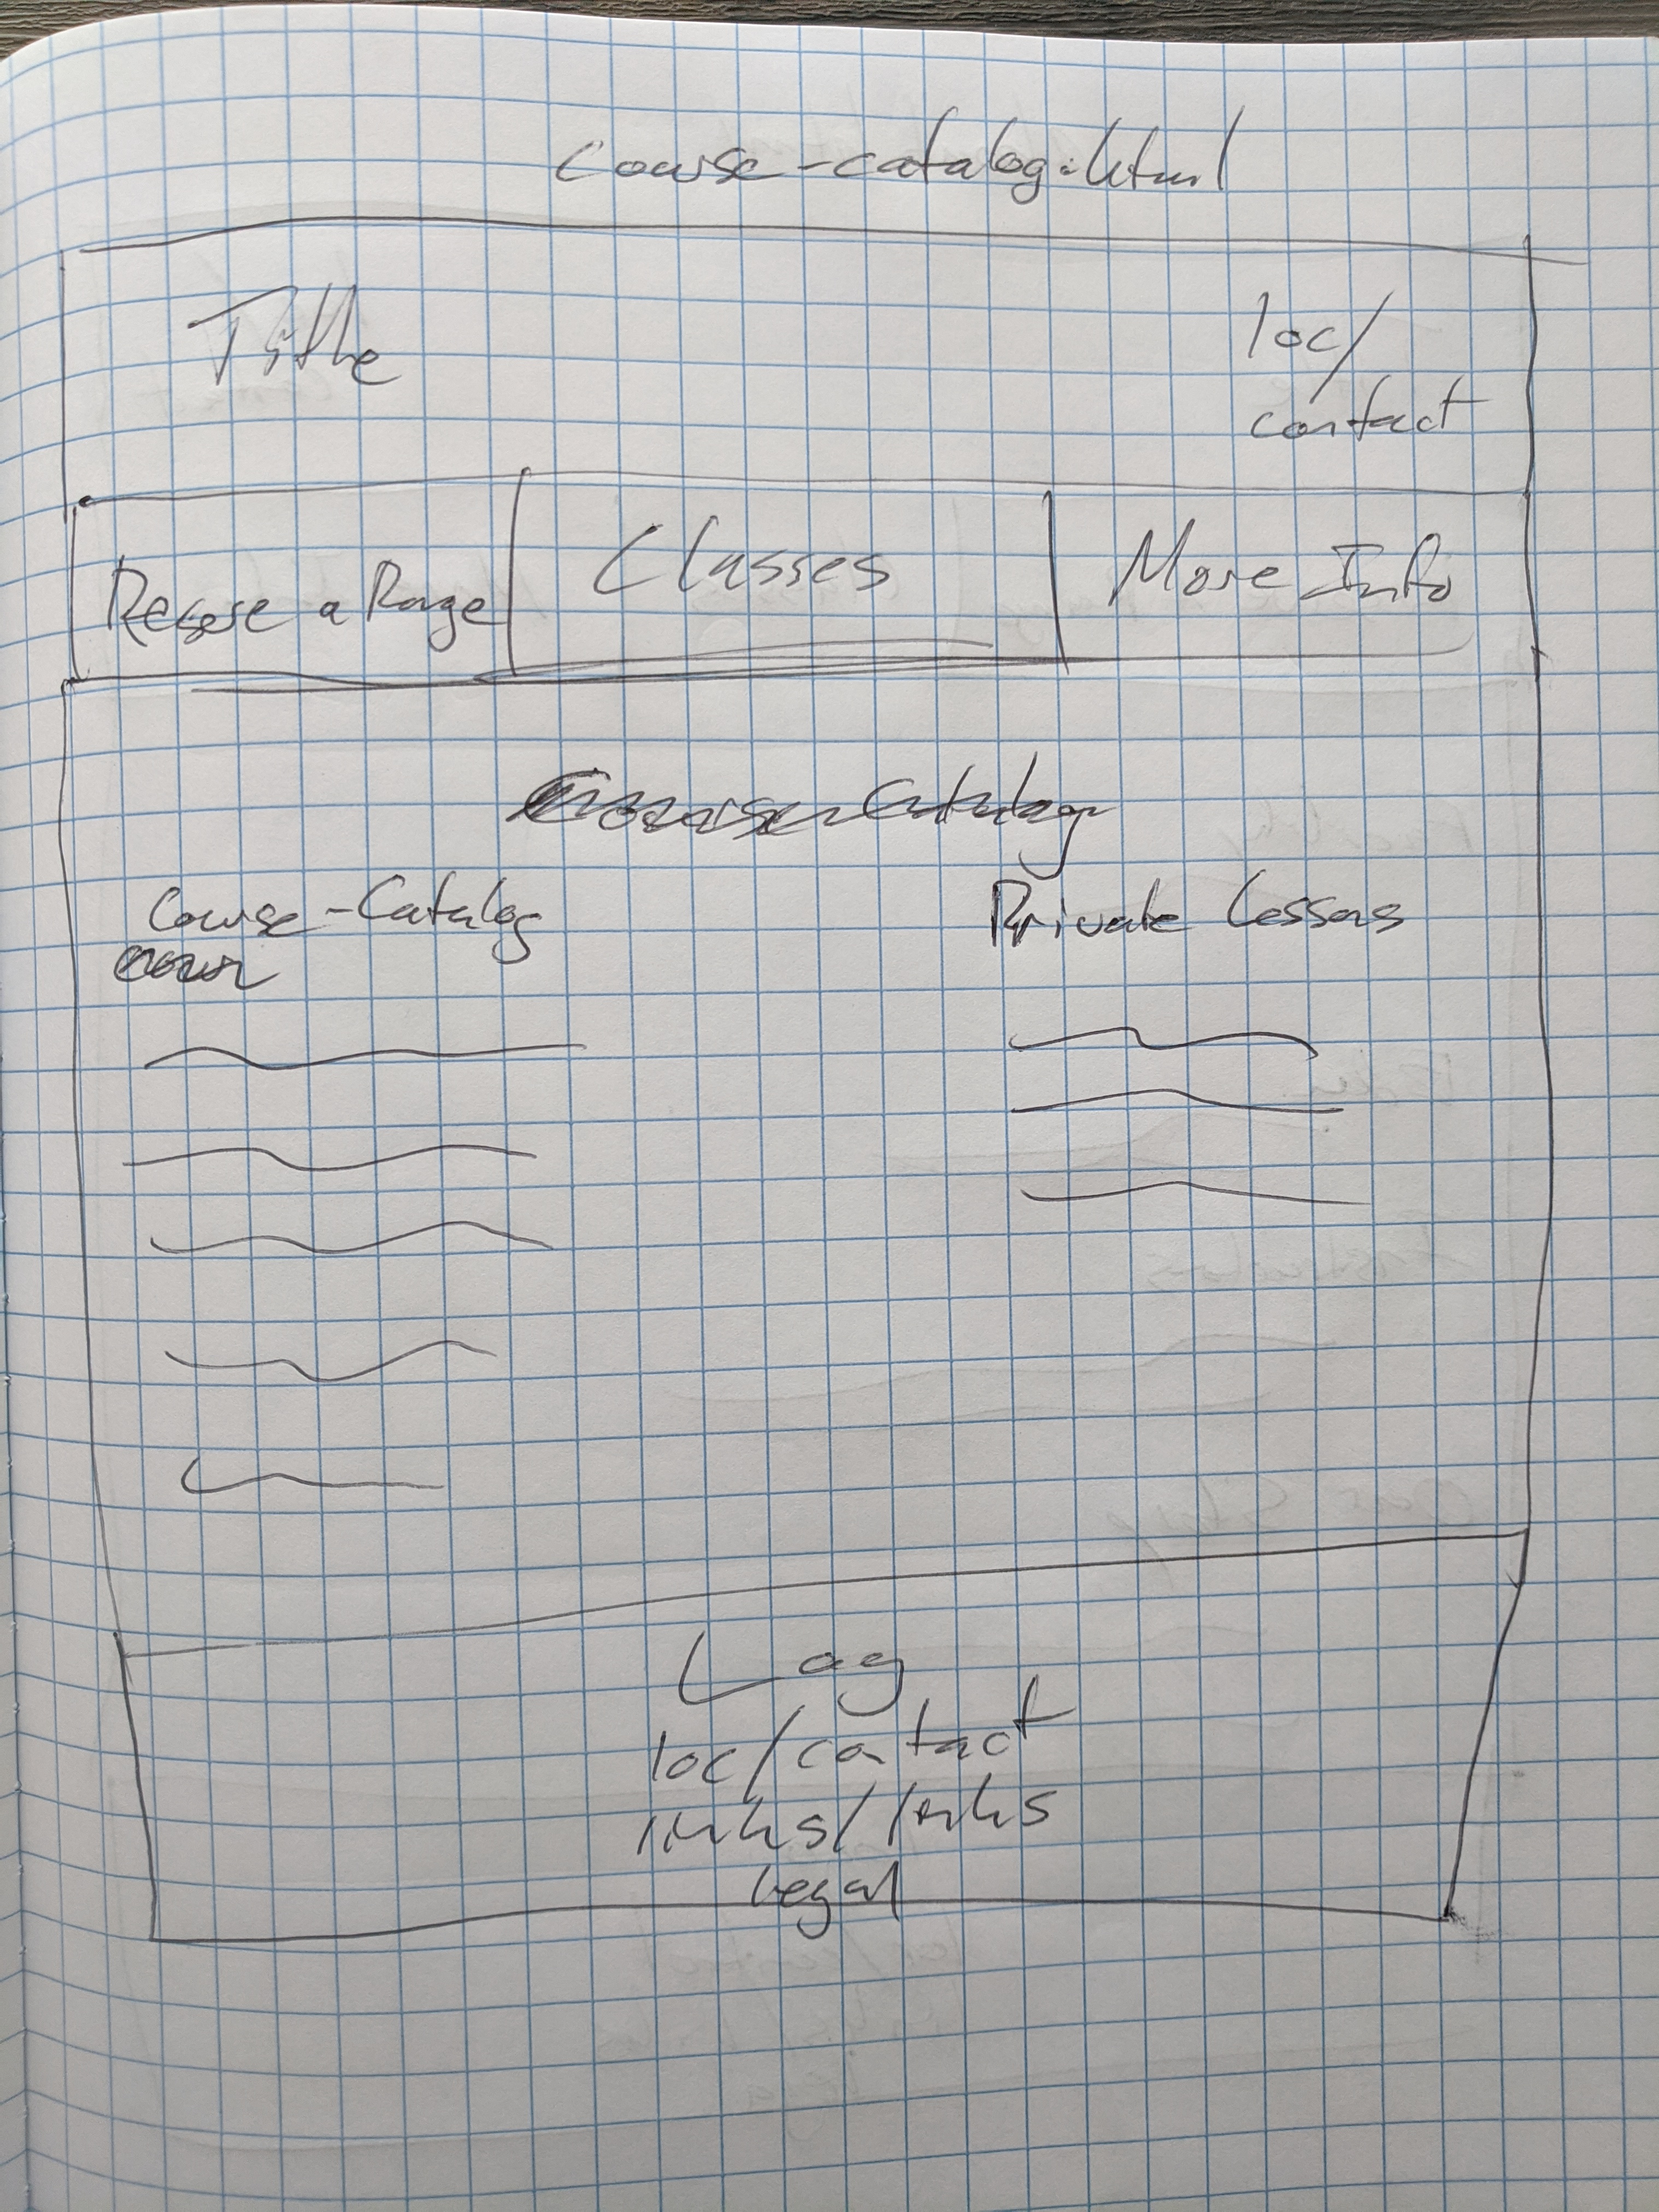 Course-catalog.html
Title
loc/
contact
Reserve a Range
Classes
More Info
Course Catalog
Course-Catalog
Private Lessons
loc/contact
links/links
legal